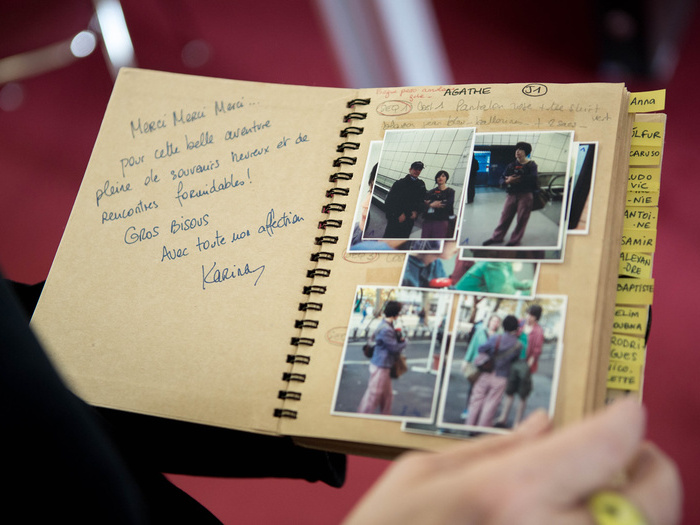 Merci Merci Merci...
pour cette belle aventure
pleine de souvenirs heureux et de
rencontres formidables!
Gros Bisous
Avec toute mon affection
Karina
AGATHE J1
Pantalon rose + tee shirt vert
ANNA
CARUSO
LUDO
VIC
NIE
ANTOI-
NE
SAMIR
ALEXAN
DRE
BAPTISTE
ELIM
BOUBNA
RODRI
GUES
NICO-
LETTE